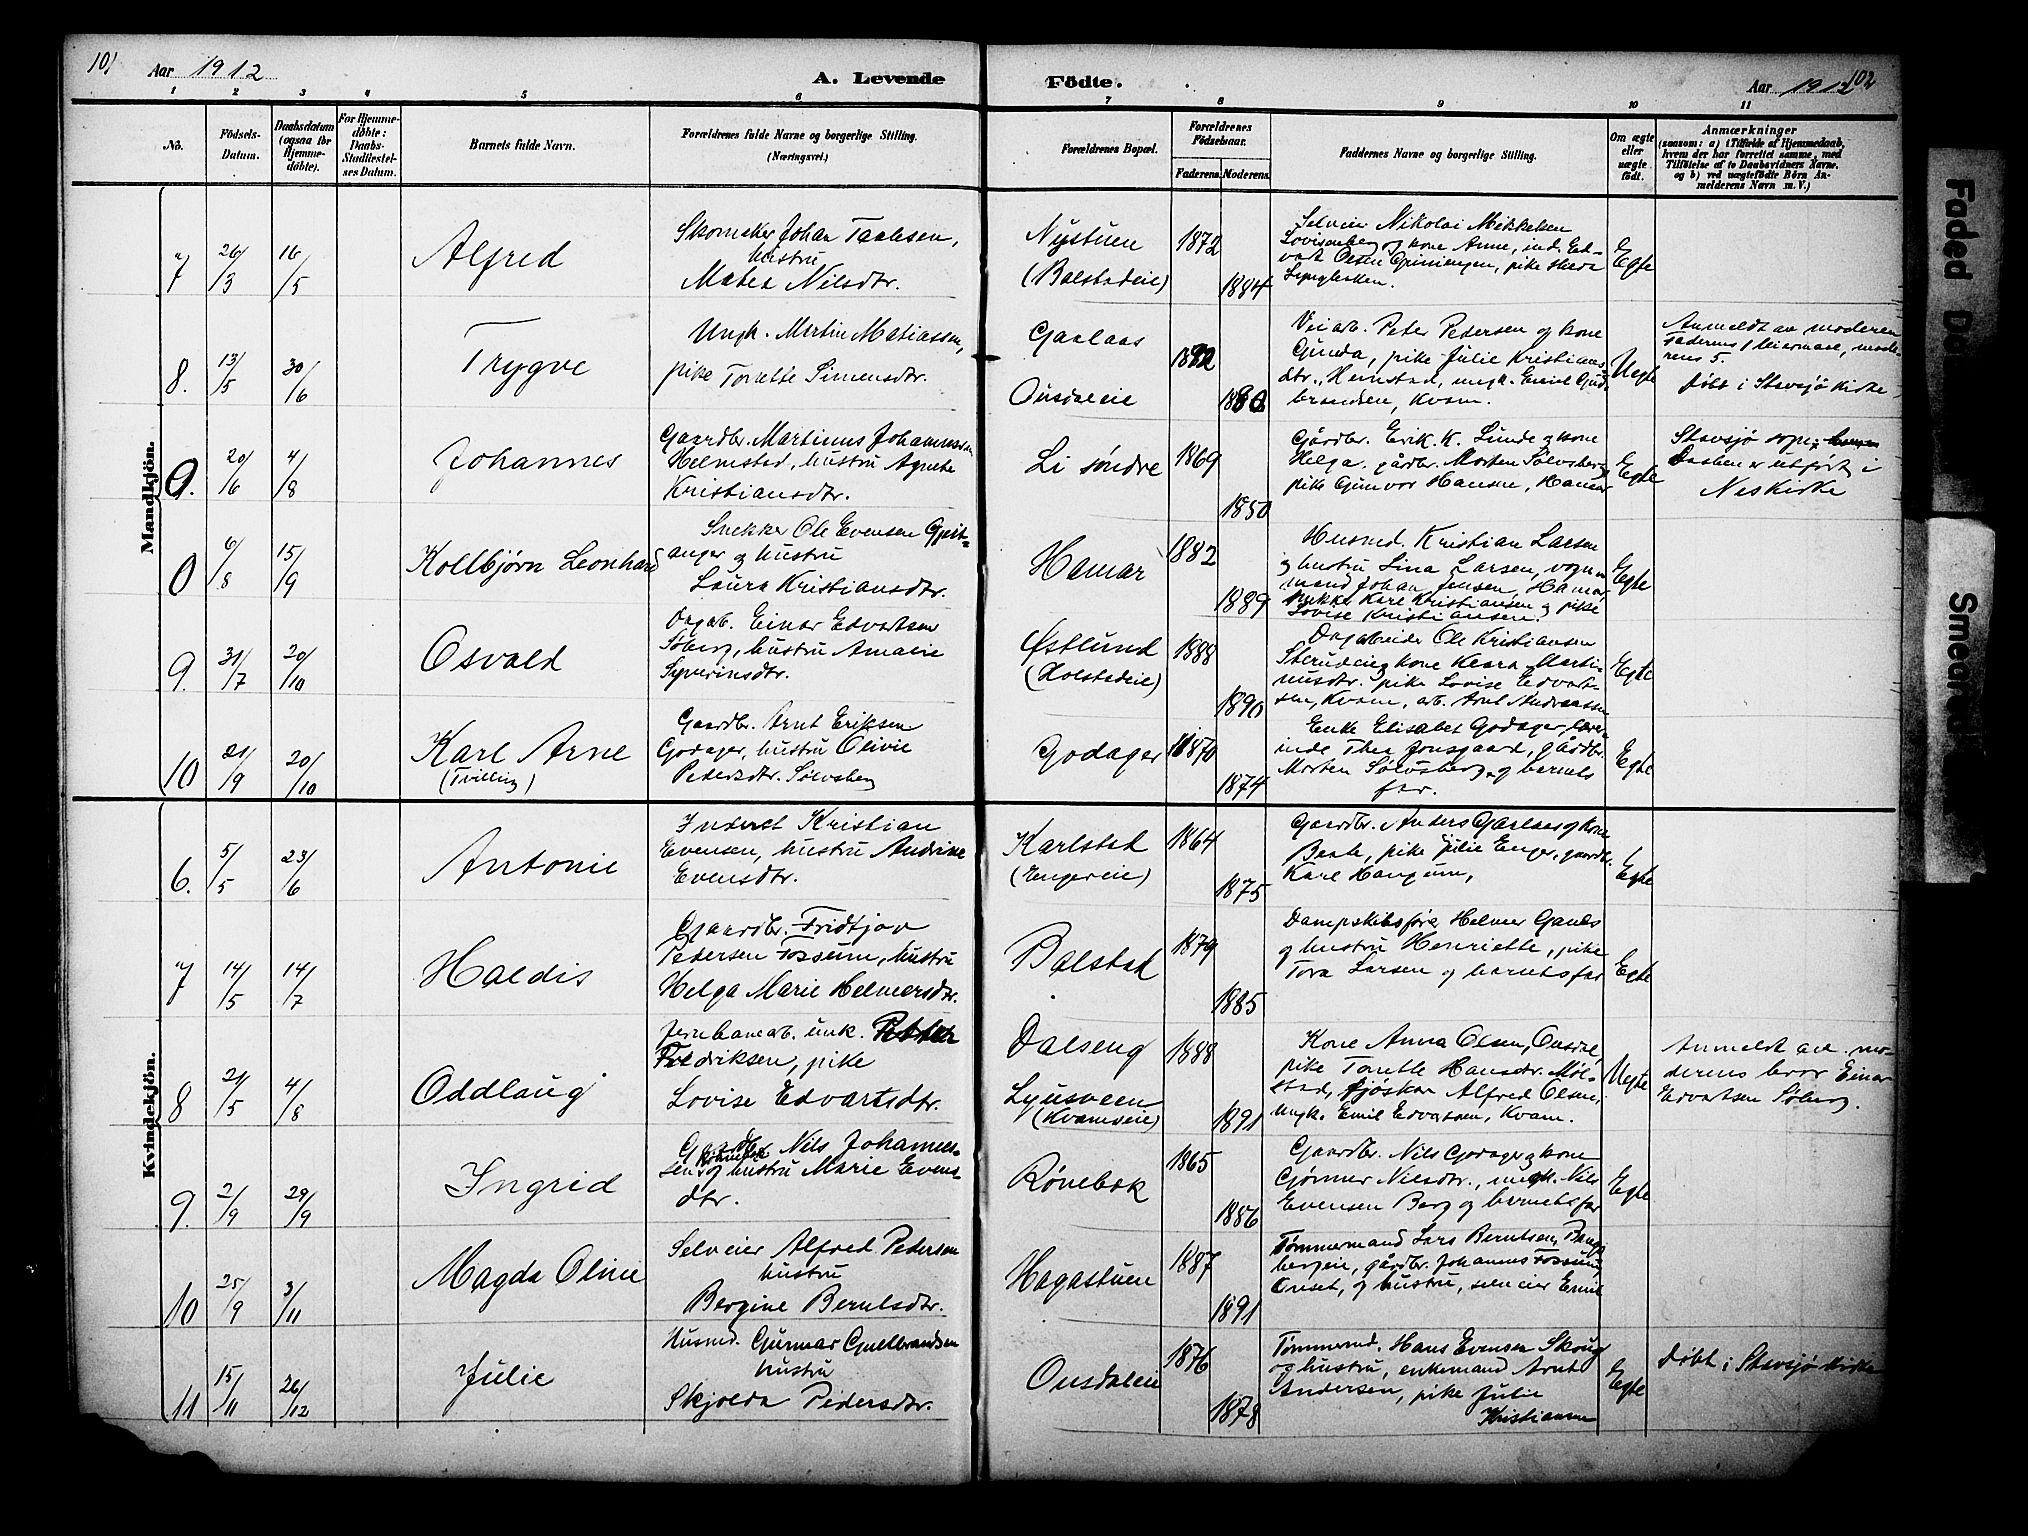 101 Aar 1912 A. Levende
Fødte. Aar 1912 102
1 2 3 4 5 6 7 8 9 10 11
No.
Födsels-Datum.
Daabsdatum (ogsaa for Hjemme-döbte).
For Hjemme-döbte: Daabs-Stadfæstel-ses Datum.
Barnets fulde Navn.
Forældrenes fulde Navne og borgerlige Stilling.
(Næringsvei.)
Forældrenes Bopæl.
Forældrenes Födselsaar.
Faderens. Moderens.
Faddernes Navne og borgerlige Stilling.
Om ægte eller uægte født.
Anmærkninger
(saasom: a) i Tilfælde af Hjemmedaab,
hvem der har forrettet samme, med
Tilföielse af to Daabsvidners Navne.
og b) ved uægtefödte Börn An-
melderens Navn m. V.)
Mandkjön.
7 26/3 16/5 Alfred
Skomaker Johan Taalesen,
hustru
Matea Nilsdtr.
Nystuen
(Balstadeie)
1872 1884
Selveier Nikolai Mikkelsen
Lovisenberg og kone Anne, ind. Ed-
vart Olsen Grimingen, pike
Lyngbakken.
Egte
8. 13/5 30/6 Trygve
Ungk. Martin Matiassen,
pike Tonette Simensdtr.
Gaalaas
Ousdaleie
1882 1880
Veiarb. Peter Pedersen og kone
Gunda, pike Julie Kristians-
dtr., Hemstad, ungk. Emil Gud-
brandsen, Kvam.
Uegte
Anmeldt av moderen
faderens 1 leiermaal, mode-
rens 5.
Døbt i Stavsjø kirke,
9. 20/6 4/8 Johannes
Gaardbr. Martinus Johannessen
Helmstad, hustru Agnete
Kristiansdtr.
Li søndre
1869 1850
Gårdbr. Erik K. Lunde og kone
Helga, gårdbr. Morten Sølvsberg
pike Gunvor Hansen, Hamar
Egte
Stavsjø sogn
Daaben er utført i
Nes kirke
0 6/8 15/9 Kollbjørn Leonhard
Snekker Ole Evensen Gjest-
anger og hustru
Laura Kristiansdtr.
Hamar
1882 1889
Husmd. Kristian Larsen
og hustru Lina Larsen, vogn-
mand Johan Jensen, Hamar,
snekker Karl Kristiansen og pike
Lovise Kristiansen.
Egte
9. 31/7 20/10 Osvald
Dagarb. Einar Edvartsen
Søberg, hustru Amalie
Syverinsdtr.
Østlund
(Holstadeie)
1888 1890
Dagarbeider Ole Kristiansen
Sterudeie og kone Klara Marti-
nusdtr. pike Lovise Edvart-
sen, Kvam, arb. Arnt Andreassen
Egte
10 21/9 20/10 Karl Arne
(Tvilling)
Gaardbr. Arnt Eriksen
Godager, hustru Olivie
Pedersdtr. Sølvsberg
Godager
1870 1874
Enke Elisabet Godager, lærer-
inde Thea Jonsgaard, gårdbr.
Morten Sølvsberg og barnets
far.
Egte
Kvindekjön.
6. 5/5 23/6 Antonie
Inderst Kristian
Evensen, hustru Andrine
Evensdtr.
Karlstad
(Engereie)
1864 1875
Gaardbr. Anders Gaalaas og kone
Beate, pike Julie Enger, gaardbr.
Karl Haugum,
Egte
7 14/5 14/7 Haldis
Gaardbr. Fridtjov
Pedersen Fossum, hustru
Helga Marie Helmersdtr.
Balstad
1879 1885
Dampskibsfører Helmer Gaalås
og hustru Henriette, pike
Tora Larsen og barnets far
Egte
8 21/5 4/8 Oddlaug
Jernbanearb. unk. Petter
Fredriksen, pike
Lovise Edvartsdtr.
Dalseng
Lyusveen
(Kvamseie)
1888 1891
Kone Anna Olsen, Ousdal,
pike Tonette Hansdtr. Møl-
stad, fjøskar Alfred Olsen,
ungk. Emil Edvartsen, Kvam.
Uegte
Anmeldt av mo-
derens bror Einar
Edvartsen Søberg.
9. 2/9 29/9 Ingrid
Gaardbr. Nils Johannes-
sen og hustru Marie Evens-
dtr.
Rønebæk
1865 1886
Gaardbr. Nils Godager og kone
Gjørmer Nilsdtr., ungk. Nils
Evensen Berg og barnets far
Egte
10 25/9 3/11 Magda Oline
Selveier Alfred Pedersen
hustru
Bergine Berntsdtr.
Hagastuen
1887 1891
Tømmermand Lars Berntsen,
bergeie, gårdbr. Johannes Fossum,
Onset, og hustru, selveier Emil
11 15/11 26/12 Julie
Husmd. Gunnar Gulbrandsen
hustru
Skjolda Pedersdtr.
Ousdaleie
1876 1878
Tømmermd. Hans Evensen Skoug
og hustru, enkemand Arnt
Andersen, pike Julie
Kristiansen
Egte
Døbt i Stavsjø kirke
Faded
Smeared